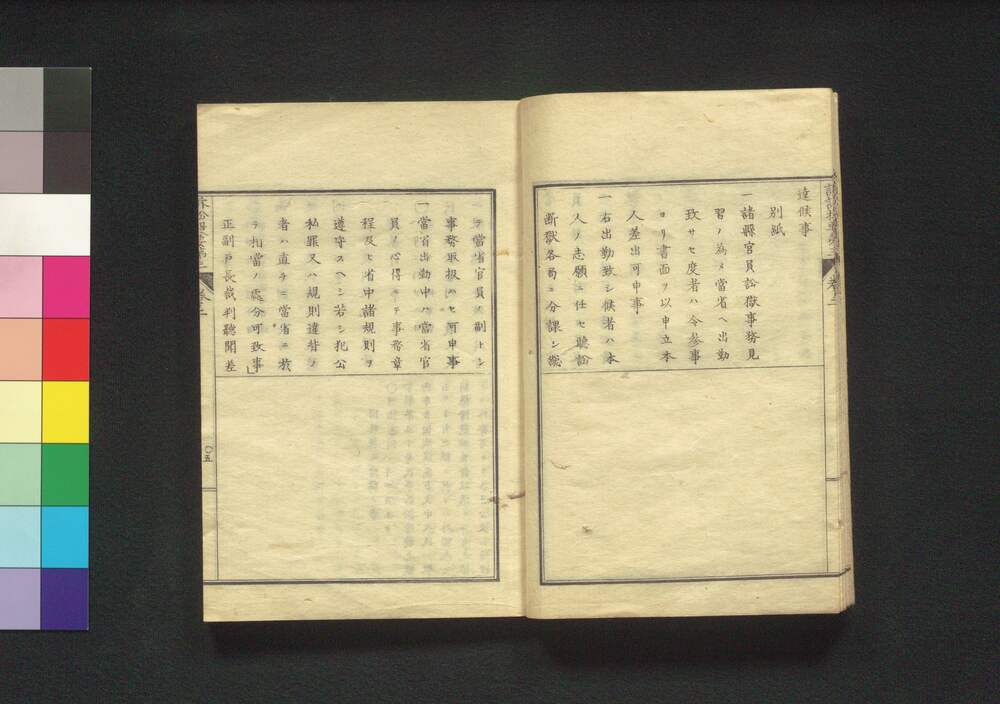 達候事
別紙
一諸縣官員訟獄事務見
習ノ為メ當省ヘ出勤
致サセ度者ハ令參事
ヨリ書面ヲ以申立本
人差出可申事
一右出勤致シ候者ハ本
人ノ志願ニ任セ聽訟
断獄各局ニ分課シ
テ當省官員ノ副トシ
事務取扱ハセ可申事
一當省出勤中ハ當省官
員ノ心得ニテ事務章
程及ヒ省中諸規則ヲ
遵守スヘシ若シ犯公
私罪又ハ規則違背ノ
者ハ直チニ當省ニ於
テ相當ノ處分可致事」
正副戸長裁判聽聞差
卷之二
〇五